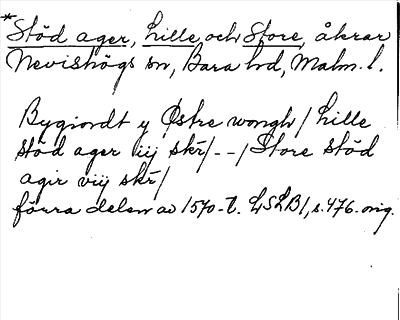 *Stöd ager, Lille, och Store, åkrar
Nevishögs sn, Bara hd, Malm. l.
Bygiordt y Østre wongh / Lille
Stöd ager iiij skr/ - - / Store Stöd
agir viij skr/
förra delen av 1570-t. LSLB1, s. 476. orig.